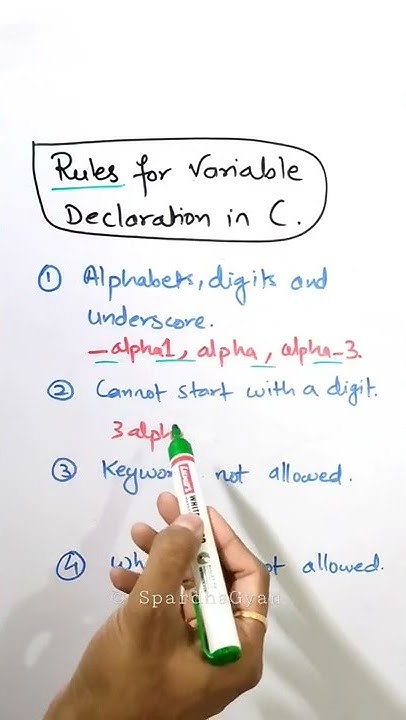 Rules for Variable
Declaration in C.
① Alphabets, digits and
underscore.
_alpha1, alpha, alpha_3.
② Cannot start with a digit.
3alph
③ Keywor not allowed.
④ Wh allowed.
© SpardhaGyan